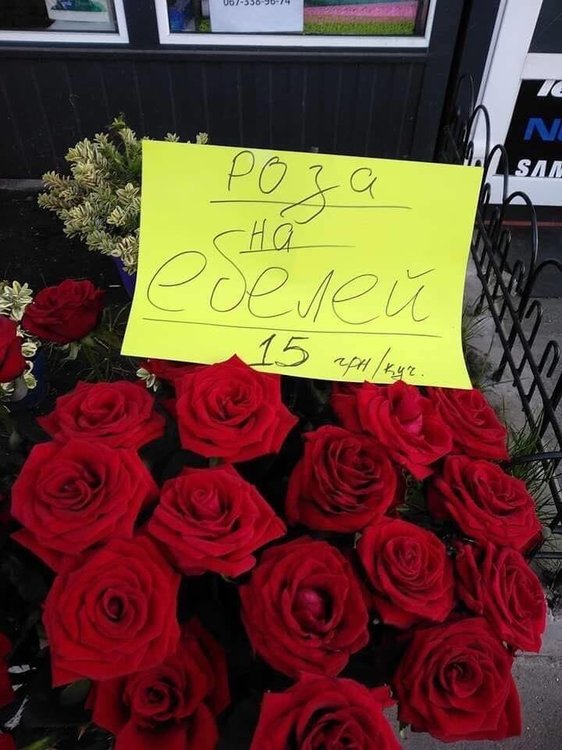 067-338-96-74
РОЗА
на
ебелей
15 грн/куч.
SAM